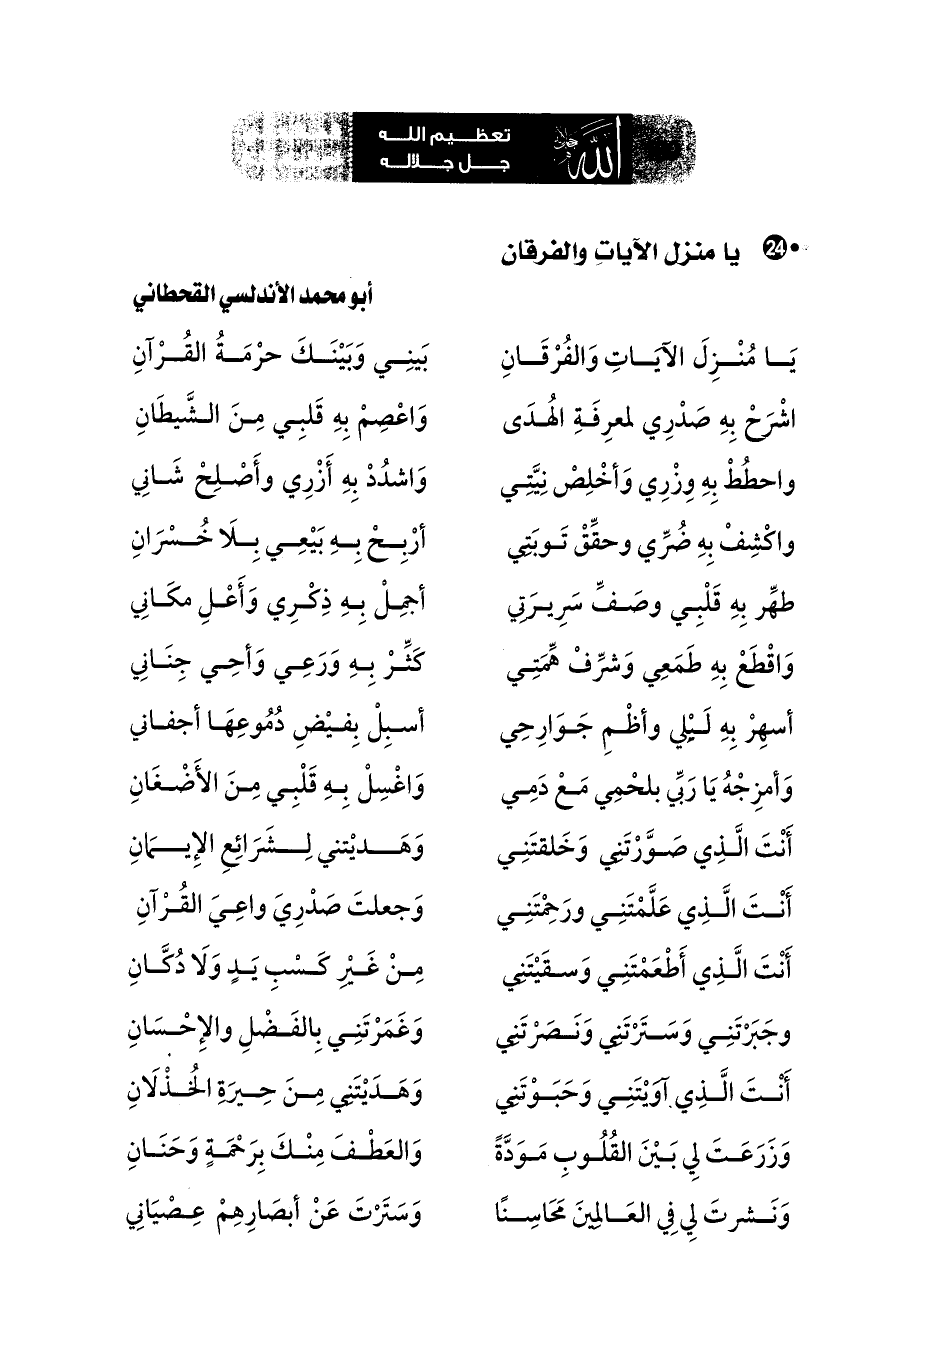 تعظيم الله
جل جلاله
الله
24 يا منزل الآياتِ والفرقان
أبو محمد الأندلسي القحطاني
يَا مُنْزِلَ الآيَاتِ وَالفُرْقَانِ بَيْنِي وَبَيْنَكَ حرْمَةُ القُرْآنِ
اشْرَحْ بِهِ صَدْرِي لمعرِفَةِ الهُدَى وَاعْصِمْ بِهِ قَلبِي مِنَ الشَّيطَانِ
واحطُطْ بِهِ وِزْرِي وَأخْلِصْ نِيَّتِي وَاشدُدْ بِهِ أَزْرِي وأَصْلِحْ شَانِي
واكْشِفْ بِهِ ضُرِّي وحقِّقْ تَوبَتِي أَرْبِحْ بِهِ بَيْعِي بِلَا خُسْرَانِ
طهِّر بِهِ قَلْبِي وصَفِّ سَرِيرَتِي أجمِلْ بِهِ ذِكْرِي وَأَعْلِ مكَانِي
وَاقْطَعْ بِهِ طمَعِي وَشرِّفْ هِمَّتِي كَثِّرْ بِهِ وَرَعِي وَأحِي جِنَانِي
أسهِرْ بِهِ لَيْلِي وأظْمِ جَوَارِحِي أسبِلْ بِفيْضِ دُمُوعِهَا أجفانِي
وَأمزِجْهُ يَا رَبِّي بلحْمِي مَعْ دَمِي وَاغْسِلْ بِهِ قَلْبِي مِنَ الأَضْغَانِ
أَنْتَ الَّذِي صَوَّرْتَنِي وَخَلقتَنِي وَهَدَيْتني لِشَرَائِعِ الإِيمَانِ
أَنْتَ الَّذِي عَلَّمْتَنِي ورَحِمْتَنِي وَجعلتَ صَدْرِيَ واعِيَ القُرْآنِ
أَنْتَ الَّذِي أَطْعَمْتَنِي وَسقَيْتَنِي مِنْ غَيْرِ كَسْبِ يَدٍ وَلَا دُكَّانِ
وجَبَرْتَنِي وَسَتَرْتَنِي وَنَصَرْتَنِي وَغَمَرْتَنِي بِالفَضْلِ والإِحْسَانِ
أَنْتَ الَّذِي آوَيْتَنِي وَحَبَوْتَنِي وَهَدَيْتَنِي مِنَ حِيرَةِ الخُذْلَانِ
وَزَرَعَتَ لِي بَيْنَ القُلُوبِ مَوَدَّةً وَالعَطْفَ مِنْكَ بِرَحْمَةٍ وَحَنَانِ
وَنَشرتَ لِي فِي العَالمِينَ مَحَاسِنًا وَسَتَرْتَ عَنْ أبصَارِهِمْ عِصْيَانِي